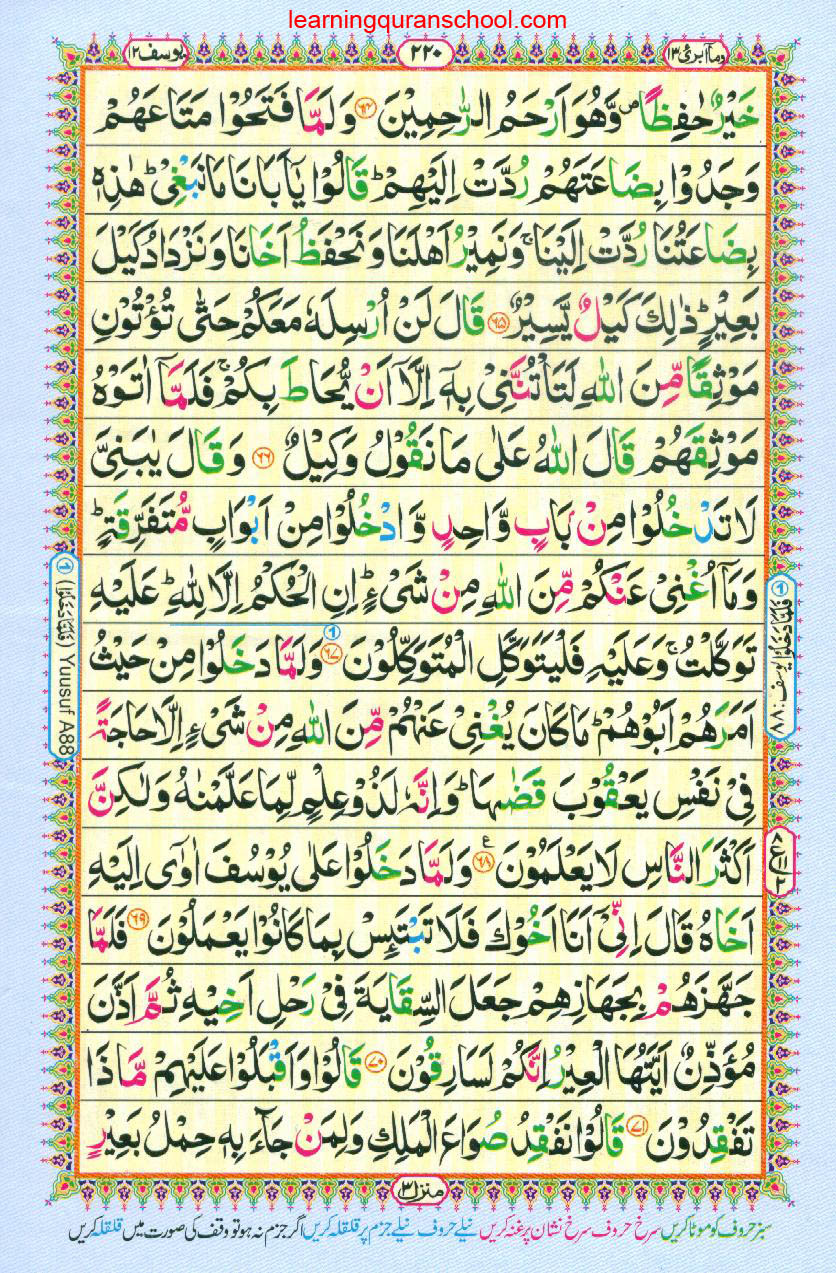 learningquranschool.com
وماابرئ ۱۳ ۲۲۰ یوسف ۱۲
خَیْرٌ حٰفِظًا ۪ وَّهُوَ اَرْحَمُ الرّٰحِمِیْنَ ﴿۶۴﴾ وَلَمَّا فَتَحُوْا مَتَاعَهُمْ
وَجَدُوْا بِضَاعَتَهُمْ رُدَّتْ اِلَیْهِمْ ؕ قَالُوْا یٰۤاَبَانَا مَا نَبْغِیْ ؕ هٰذِهٖ
بِضَاعَتُنَا رُدَّتْ اِلَیْنَا ۚ وَنَمِیْرُ اَهْلَنَا وَنَحْفَظُ اَخَانَا وَنَزْدَادُ كَیْلَ
بَعِیْرٍ ؕ ذٰلِكَ كَیْلٌ یَّسِیْرٌ ﴿۶۵﴾ قَالَ لَنْ اُرْسِلَهٗ مَعَكُمْ حَتّٰی تُؤْتُوْنِ
مَوْثِقًا مِّنَ اللّٰهِ لَتَاْتُنَّنِیْ بِهٖۤ اِلَّاۤ اَنْ یُّحَاطَ بِكُمْ ۚ فَلَمَّاۤ اٰتَوْهُ
مَوْثِقَهُمْ قَالَ اللّٰهُ عَلٰی مَا نَقُوْلُ وَكِیْلٌ ﴿۶۶﴾ وَقَالَ یٰبَنِیَّ
لَا تَدْخُلُوْا مِنْۢ بَابٍ وَّاحِدٍ وَّادْخُلُوْا مِنْ اَبْوَابٍ مُّتَفَرِّقَةٍ ؕ
وَمَاۤ اُغْنِیْ عَنْكُمْ مِّنَ اللّٰهِ مِنْ شَیْءٍ ؕ اِنِ الْحُكْمُ اِلَّا لِلّٰهِ ؕ عَلَیْهِ
تَوَكَّلْتُ ۚ وَعَلَیْهِ فَلْیَتَوَكَّلِ الْمُتَوَكِّلُوْنَ ﴿۶۷﴾ ① وَلَمَّا دَخَلُوْا مِنْ حَیْثُ
اَمَرَهُمْ اَبُوْهُمْ ؕ مَا كَانَ یُغْنِیْ عَنْهُمْ مِّنَ اللّٰهِ مِنْ شَیْءٍ اِلَّا حَاجَةً
فِیْ نَفْسِ یَعْقُوْبَ قَضٰىهَا ؕ وَاِنَّهٗ لَذُوْ عِلْمٍ لِّمَا عَلَّمْنٰهُ وَلٰكِنَّ
اَكْثَرَ النَّاسِ لَا یَعْلَمُوْنَ ﴿۶۸﴾ ع وَلَمَّا دَخَلُوْا عَلٰی یُوْسُفَ اٰوٰۤی اِلَیْهِ
اَخَاهُ قَالَ اِنِّیْۤ اَنَا اَخُوْكَ فَلَا تَبْتَىِٕسْ بِمَا كَانُوْا یَعْمَلُوْنَ ﴿۶۹﴾ فَلَمَّا
جَهَّزَهُمْ بِجَهَازِهِمْ جَعَلَ السِّقَایَةَ فِیْ رَحْلِ اَخِیْهِ ثُمَّ اَذَّنَ
مُؤَذِّنٌ اَیَّتُهَا الْعِیْرُ اِنَّكُمْ لَسَارِقُوْنَ ﴿۷۰﴾ قَالُوْا وَاَقْبَلُوْا عَلَیْهِمْ مَّا ذَا
تَفْقِدُوْنَ ﴿۷۱﴾ قَالُوْا نَفْقِدُ صُوَاعَ الْمَلِكِ وَلِمَنْ جَآءَ بِهٖ حِمْلُ بَعِیْرٍ
① فَلَمَّا دَخَلُوْا یوسف: ۸۸
① (فَلَمَّا دَخَلُوْا) Yousuf A88
منزل ۳
سبز حروف کو موٹا کریں سرخ حروف سرخ نشان پر غنہ کریں نیلے حروف نیلے جزم پر قلقلہ کریں اگر جزم نہ ہو تو وقف کی صورت میں قلقلہ کریں